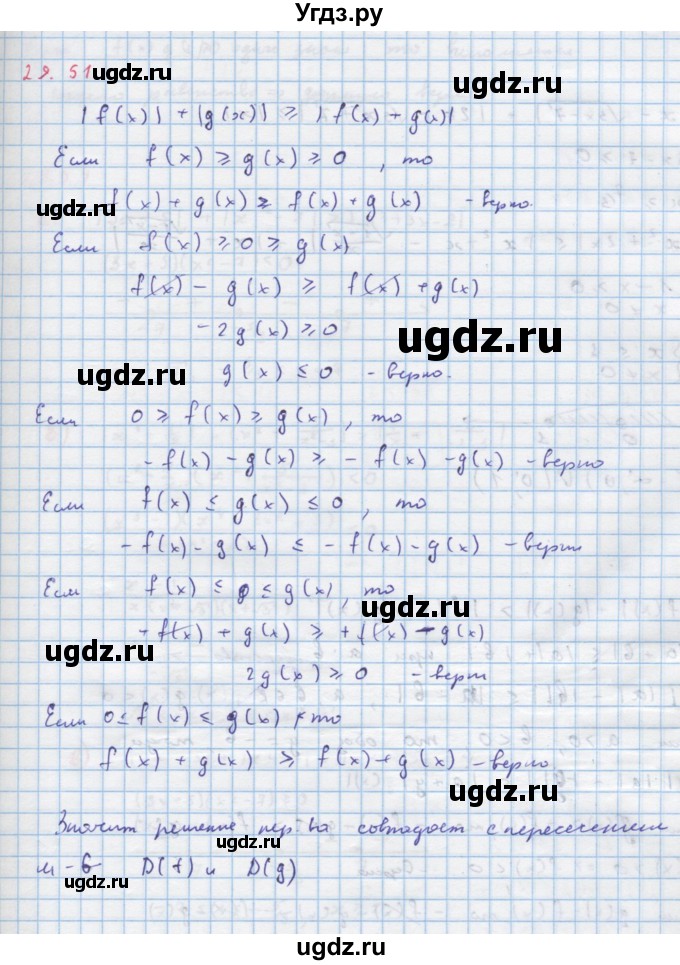 Угдз.ру
29.51
ugdz.ru
|f(x)| + |g(x)| ⩾ |f(x) + g(x)|
Если f(x) ⩾ g(x) ⩾ 0, то
f(x) + g(x) ⩾ f(x) + g(x) - верно.
ugdz.ru
Если f(x) ⩾ 0 ⩾ g(x)
f(x) - g(x) ⩾ f(x) + g(x)
-2g(x) ⩾ 0
ugdz.ru
g(x) ≤ 0 - верно.
ugdz.ru
Если 0 ⩾ f(x) ⩾ g(x), то
-f(x) - g(x) ⩾ -f(x) - g(x) - верно
Если f(x) ≤ g(x) ≤ 0, то
-f(x) - g(x) ≤ -f(x) - g(x) - верн
Если f(x) ≤ 0 ≤ g(x), то
ugdz.ru
-f(x) + g(x) ⩾ +f(x) - g(x)
ugdz.ru
2g(x) ⩾ 0 - верн
Если 0 ≤ f(x) ≤ g(x), то
f(x) + g(x) ⩾ f(x) + g(x) - верно
ugdz.ru
Значит решение нер-ва совпадает с пересечением
м-в D(f) и D(g)
ugdz.ru
ugdz.ru